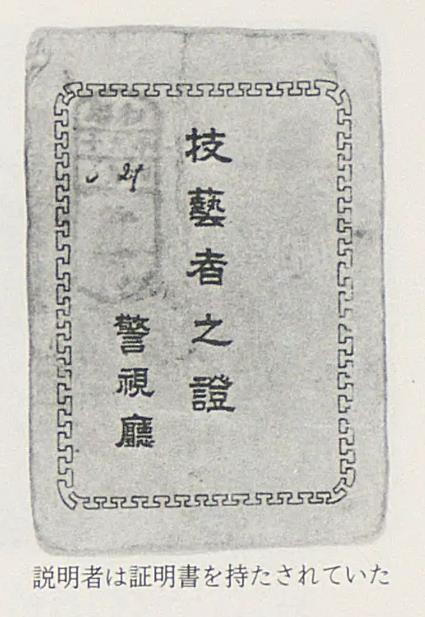 技藝者之證
警視廳
説明者は証明書を持たされていた